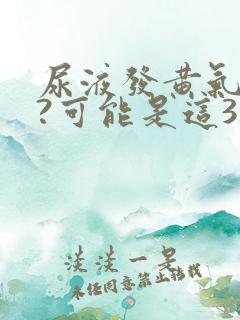 尿液發黃氣
?可能是這3
淡淡一墨
未經同意禁止轉載